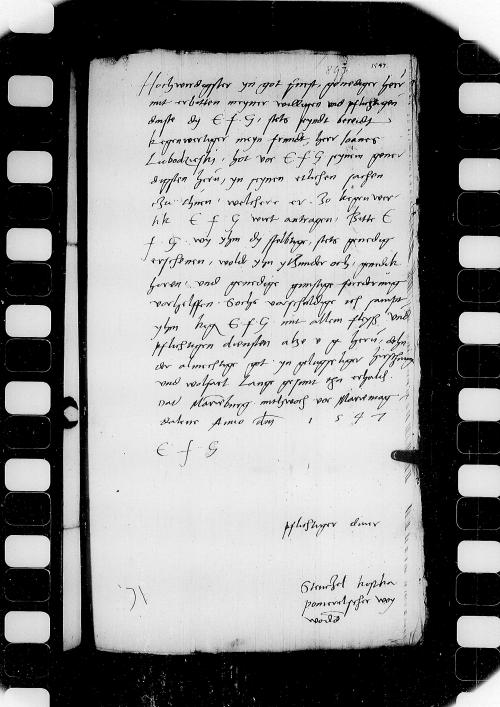 893 1547
Hochwirdigster yn got furst, genediger herr
mit erbitten meyner willigen und pflichtigen
dinste dy E f G, stets seyndt bereidt
kegenwertiger meyn freundt, herr Joannes
Lubodzieski, hot vor E f G seynen gene
digsten hern, yn seynen etlichen sachen
zu thuen, welchere er zo kegenwer
tik E f G wirt antragen, Bitte E
f G woy yhm dy selbtige, stets genedig
erscheinen, wold yhn
hern, und genedige gunstige furderung
vorhelffen. Sochs vorschuldige ich sampt
yhm kegen E f G mit allem fleyss und
pflichtigen diensten also v g hern, den
der almechtige got yn geluckseliger hirschung
und wolfart Lange gesunt erhalt.
Dat Marienburg mithwoch vor Marie mag
dalene Anno dni 1 5 4 7
E f G
pflichtiger diner
Stenczel kostka
pomerelscher woy
wode